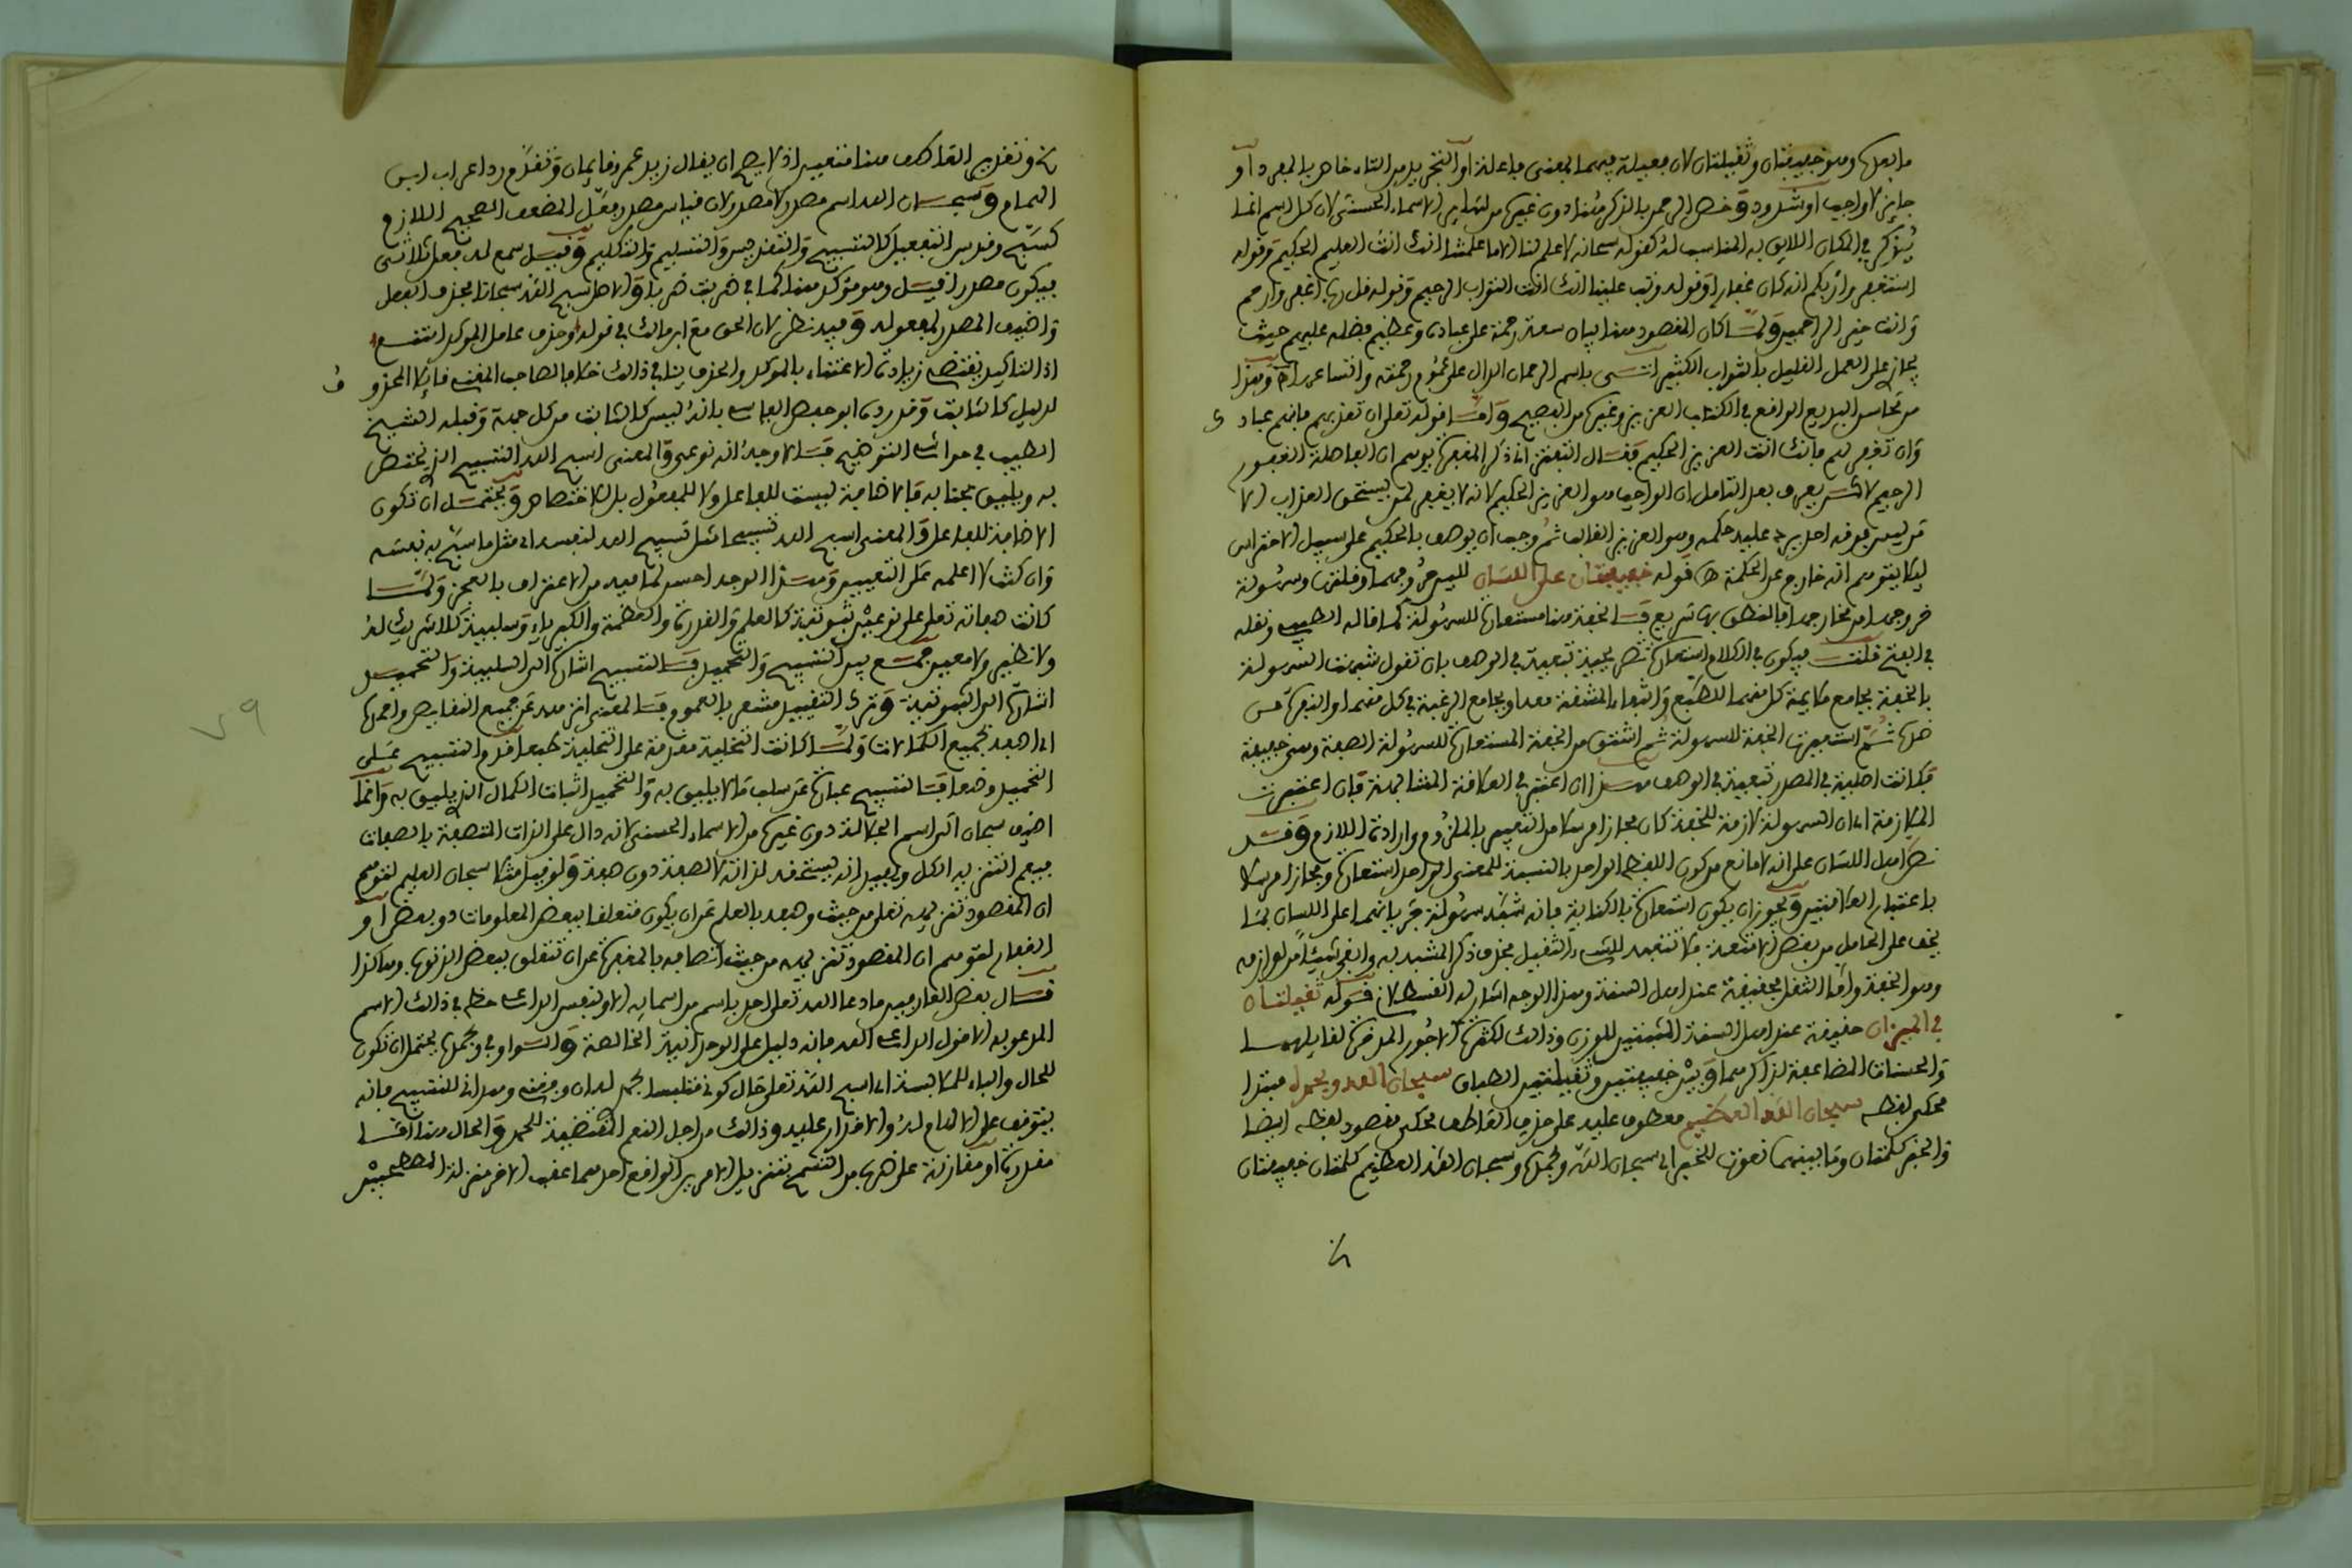 ما بعدها وهو خفيفتان وثقيلتان لان فعيلة فيهما بمعنى فاعلة او التجريد من التاء خاص بالمفرد او
جايز لا واجب او شذوذ وخص الرحمن بالذكر هنا دون غيره من ساير الاسماء الحسنى لان كل اسم انما
يذكر في المكان اللايق به المناسب له كقوله سبحانه لا علم لنا الا ما علمتنا انك انت العليم الحكيم وقوله
استغفروا ربكم انه كان غفارا وقوله وتب علينا انك انت التواب الرحيم وقوله قل رب اغفر وارحم
وانت خير الراحمين ولما كان المقصود هنا بيان سعة رحمته على عباده وعظيم فضله عليهم حيث
يجازي على العمل القليل بالثواب الكثير اتى باسم الرحمان الدال على عموم رحمته واتساعها وهذا
من محاسن البديع الواقع في الكتاب العزيز وغيره من الفصيح واما قوله تعلى ان تعذبهم فانهم عباد
وان تغفر لهم فانك انت العزيز الحكيم فقال التفتزاني ذكر المغفرة يوهم ان الفاصلة الغفور
الرحيم لاكن يعرف بعد التامل ان الواجب هو العزيز الحكيم لانه لا يغفر لمن يستحق العذاب الا
من ليس فوقه احد يرد عليه حكمه وهو العزيز الغالب ثم وجب ان يوصف بالحكيم على سبيل الاحتراس
ليلا يتوهم انه خارج عن الحكمة قوله خفيفتان على اللسان للين حروفهما وقلتها وسهولة
خروجها من مخارجها فالنطق بها سريع فالخفة هنا مستعارة للسهولة كما قاله الطيبي ونقله
في الفتح قلت فيكون في الكلام استعارة تصريحية تبعية في الوصف بان تقول شبهت السهولة
بالخفة بجامع ملايمة كل منهما للطبع وانتفاء المشقة معه او بجامع الرغبة في كل منهما او النفرة من
ضدها ثم استعيرت الخفة للسهولة ثم اشتق من الخفة المستعارة للسهولة الصفة وهي خفيفة
فكانت اصلية في المصدر تبعية في الوصف هذا ان اعتبر في العلاقة المشابهة فان اعتبرت
الملازمة اي ان السهولة لازمة للخفة كان مجازا مرسلا من التعبير بالملزوم وارادة اللازم وقد
نص اهل اللسان على انه لا مانع من كون اللفظ الواحد بالنسبة للمعنى الواحد استعارة ومجازا مرسلا
باعتبار العلاقتين ويجوز ان يكون استعارة بالكناية فانه شبه سهولة جريانهما على اللسان بما
يخف على الحامل من بعض الامتعة فلا تتعبه كالشيء الثقيل فحذف ذكر المشبه به وابقى شيئا من لوازمه
وهو الخفة واما الثقل فحقيقة عند اهل السنة وهذا الوجه اشار له القسطلاني قوله ثقيلتان
في الميزان حقيقة عند اهل السنة المثبتين للوزن وذالك لكثرة الاجور المدخرة لقايلهما
والحسنات المضاعفة لذاكرهما وبين خفيفتين وثقيلتين الطباق سبحان الله وبحمده مبتدا
محكي لفظه سبحان الله العظيم معطوف عليه على حذف العاطف محكي مقصود لفظه ايضا
والخبر كلمتان وما بينهما نعوت للخبر اي سبحان الله وبحمده وسبحان الله العظيم كلمتان خفيفتان
ونقدير العاطف هنا متعين اذ لا يصح ان يقال زيد عمرو قايمان وتقدم رد اعراب ابن
الهمام وسبحان الله اسم مصدر لا مصدر لان قياس مصدر فعل المضعف الصحيح اللازم
كسبح وقدس التفعيل كالتسبيح والتقديس والتسليم والتكليم وقيل سمع له فعل ثلاثي
فيكون مصدرا قيل وهو مؤكد هنا كما في ضربت ضربا والاصل اسبح الله سبحانا فحذف الفعل
واضيف المصدر لمفعوله وفيه نظر لان الحق مع ابن مالك في قوله وحذف عامل المؤكد امتنع
اذ التاكيد يقتضي زيادة الاعتناء بالمؤكد والحذف ينافي ذالك خلافا لصاحب المغني قايلا المحذو ف
لدليل كالثابت وقد رده ابو حفص الفاسي بانه ليس كالثابت من كل جهة وقبله الشيخ
الطيب في حواشي التوضيح فالاوجه انه نوعي والمعنى اسبح الله التسبيح الذي يختص
به ويليق بجنابه فالاضافة ليست للفاعل ولا للمفعول بل للاختصاص ويحتمل ان تكون
الاضافة للفاعل والمعنى اسبح الله تسبيحا مثل تسبيح الله لنفسه اي مثل ما سبح به نفسه
وان كنت لا اعلمه على التعيين وهذا الوجه احسن لما فيه من الاعتراف بالعجز ولما
كانت صفاته تعلى على نوعين ثبوتية كالعلم والقدرة والعظمة والكبرياء وسلبية كلا شريك له
ولا نظير ولا معين جمع بين التسبيح والتحميد فالتسبيح اشارة الى السلبية والتحميد
اشارة الى الثبوتية وترك التقييد مشعر بالعموم فالمعنى انزهه عن جميع النقايص واحمده
اي اصفه بجميع الكمالات ولما كانت التخلية مقدمة على التحلية طبعا قدم التسبيح على
التحميد وضعا فالتسبيح عبارة عن سلب ما لا يليق به والتحميد اثبات الكمال الذي يليق به وانما
اضيف سبحان الى اسم الجلالة دون غيرها من الاسماء الحسنى لانه دال على الذات المتصفة بالصفات
فيعم التنزيه الكل ويفيد انه يستحقه لذاته لا لصفة دون صفة ولو قيل مثلا سبحان العليم لتوهم
ان المقصود تنزيهه تعلى من حيث وصفه بالعلم عن ان يكون متعلقا ببعض المعلومات دون بعض او
الغفار لتوهم ان المقصود تنزيهه من حيث اتصافه بالمغفرة عن ان تتعلق ببعض الذنوب وهاكذا
قال بعض العارفين ما دعا الله تعلى احد باسم من اسمايه الا ولنفس الداعي حظ في ذالك الاسم
المدعو به الا قول الداعي الله فانه دليل على الوحدانية الخالصة والواو في وبحمده يحتمل ان تكون
للحال والباء للملابسة اي اسبح الله تعلى حال كوني متلبسا بحمدي له وهداني للتسبيح فانه
يتوقف على الالهام له والاقدار عليه وذالك من اجل النعم المقتضية للحمد والحال هنا اما
مقدرة او مقارنة على ضرب من التسمح بتنزيل الامرين الواقع احدهما عقب الاخر منزلة المصطحبين
٧٩